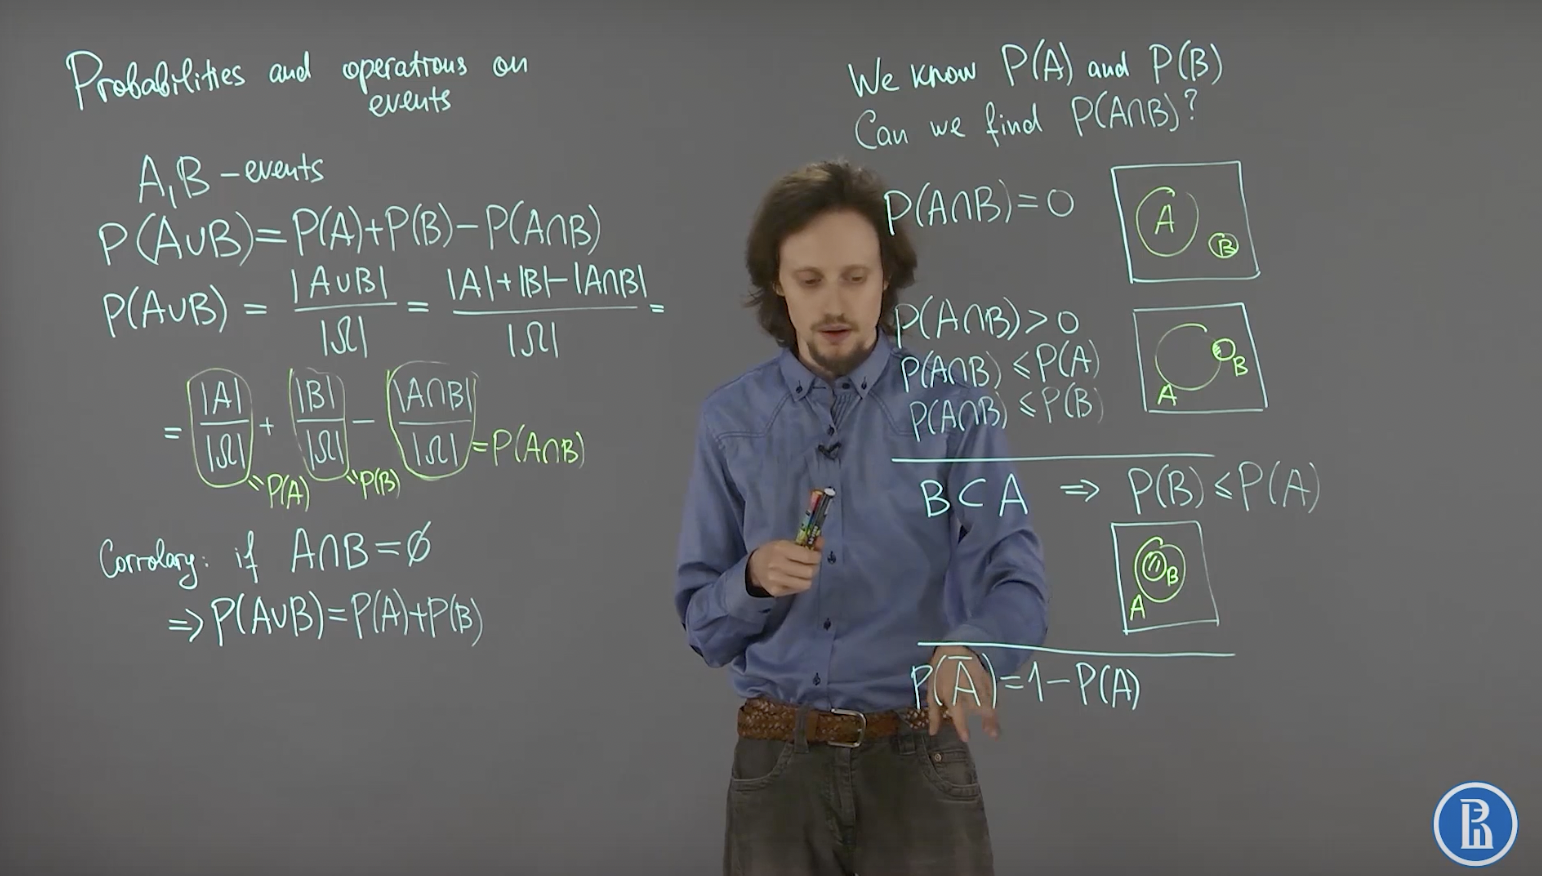 Probabilities and operations on
events
A,B – events
P(A∪B)=P(A)+P(B)−P(A∩B)
P(A∪B) = |A∪B| / |Ω| = |A|+|B|−|A∩B| / |Ω| =
= |A| / |Ω| + |B| / |Ω| − |A∩B| / |Ω| = P(A∩B)
"P(A) "P(B)
Corrolary: if A∩B=∅
⇒ P(A∪B)=P(A)+P(B)
We know P(A) and P(B)
Can we find P(A∩B)?
P(A∩B)=0
A
B
P(A∩B)>0
P(A∩B) ≤P(A)
P(A∩B) ≤P(B)
B
A
B⊂A ⇒ P(B)≤P(A)
B
A
P(A̅)=1−P(A)